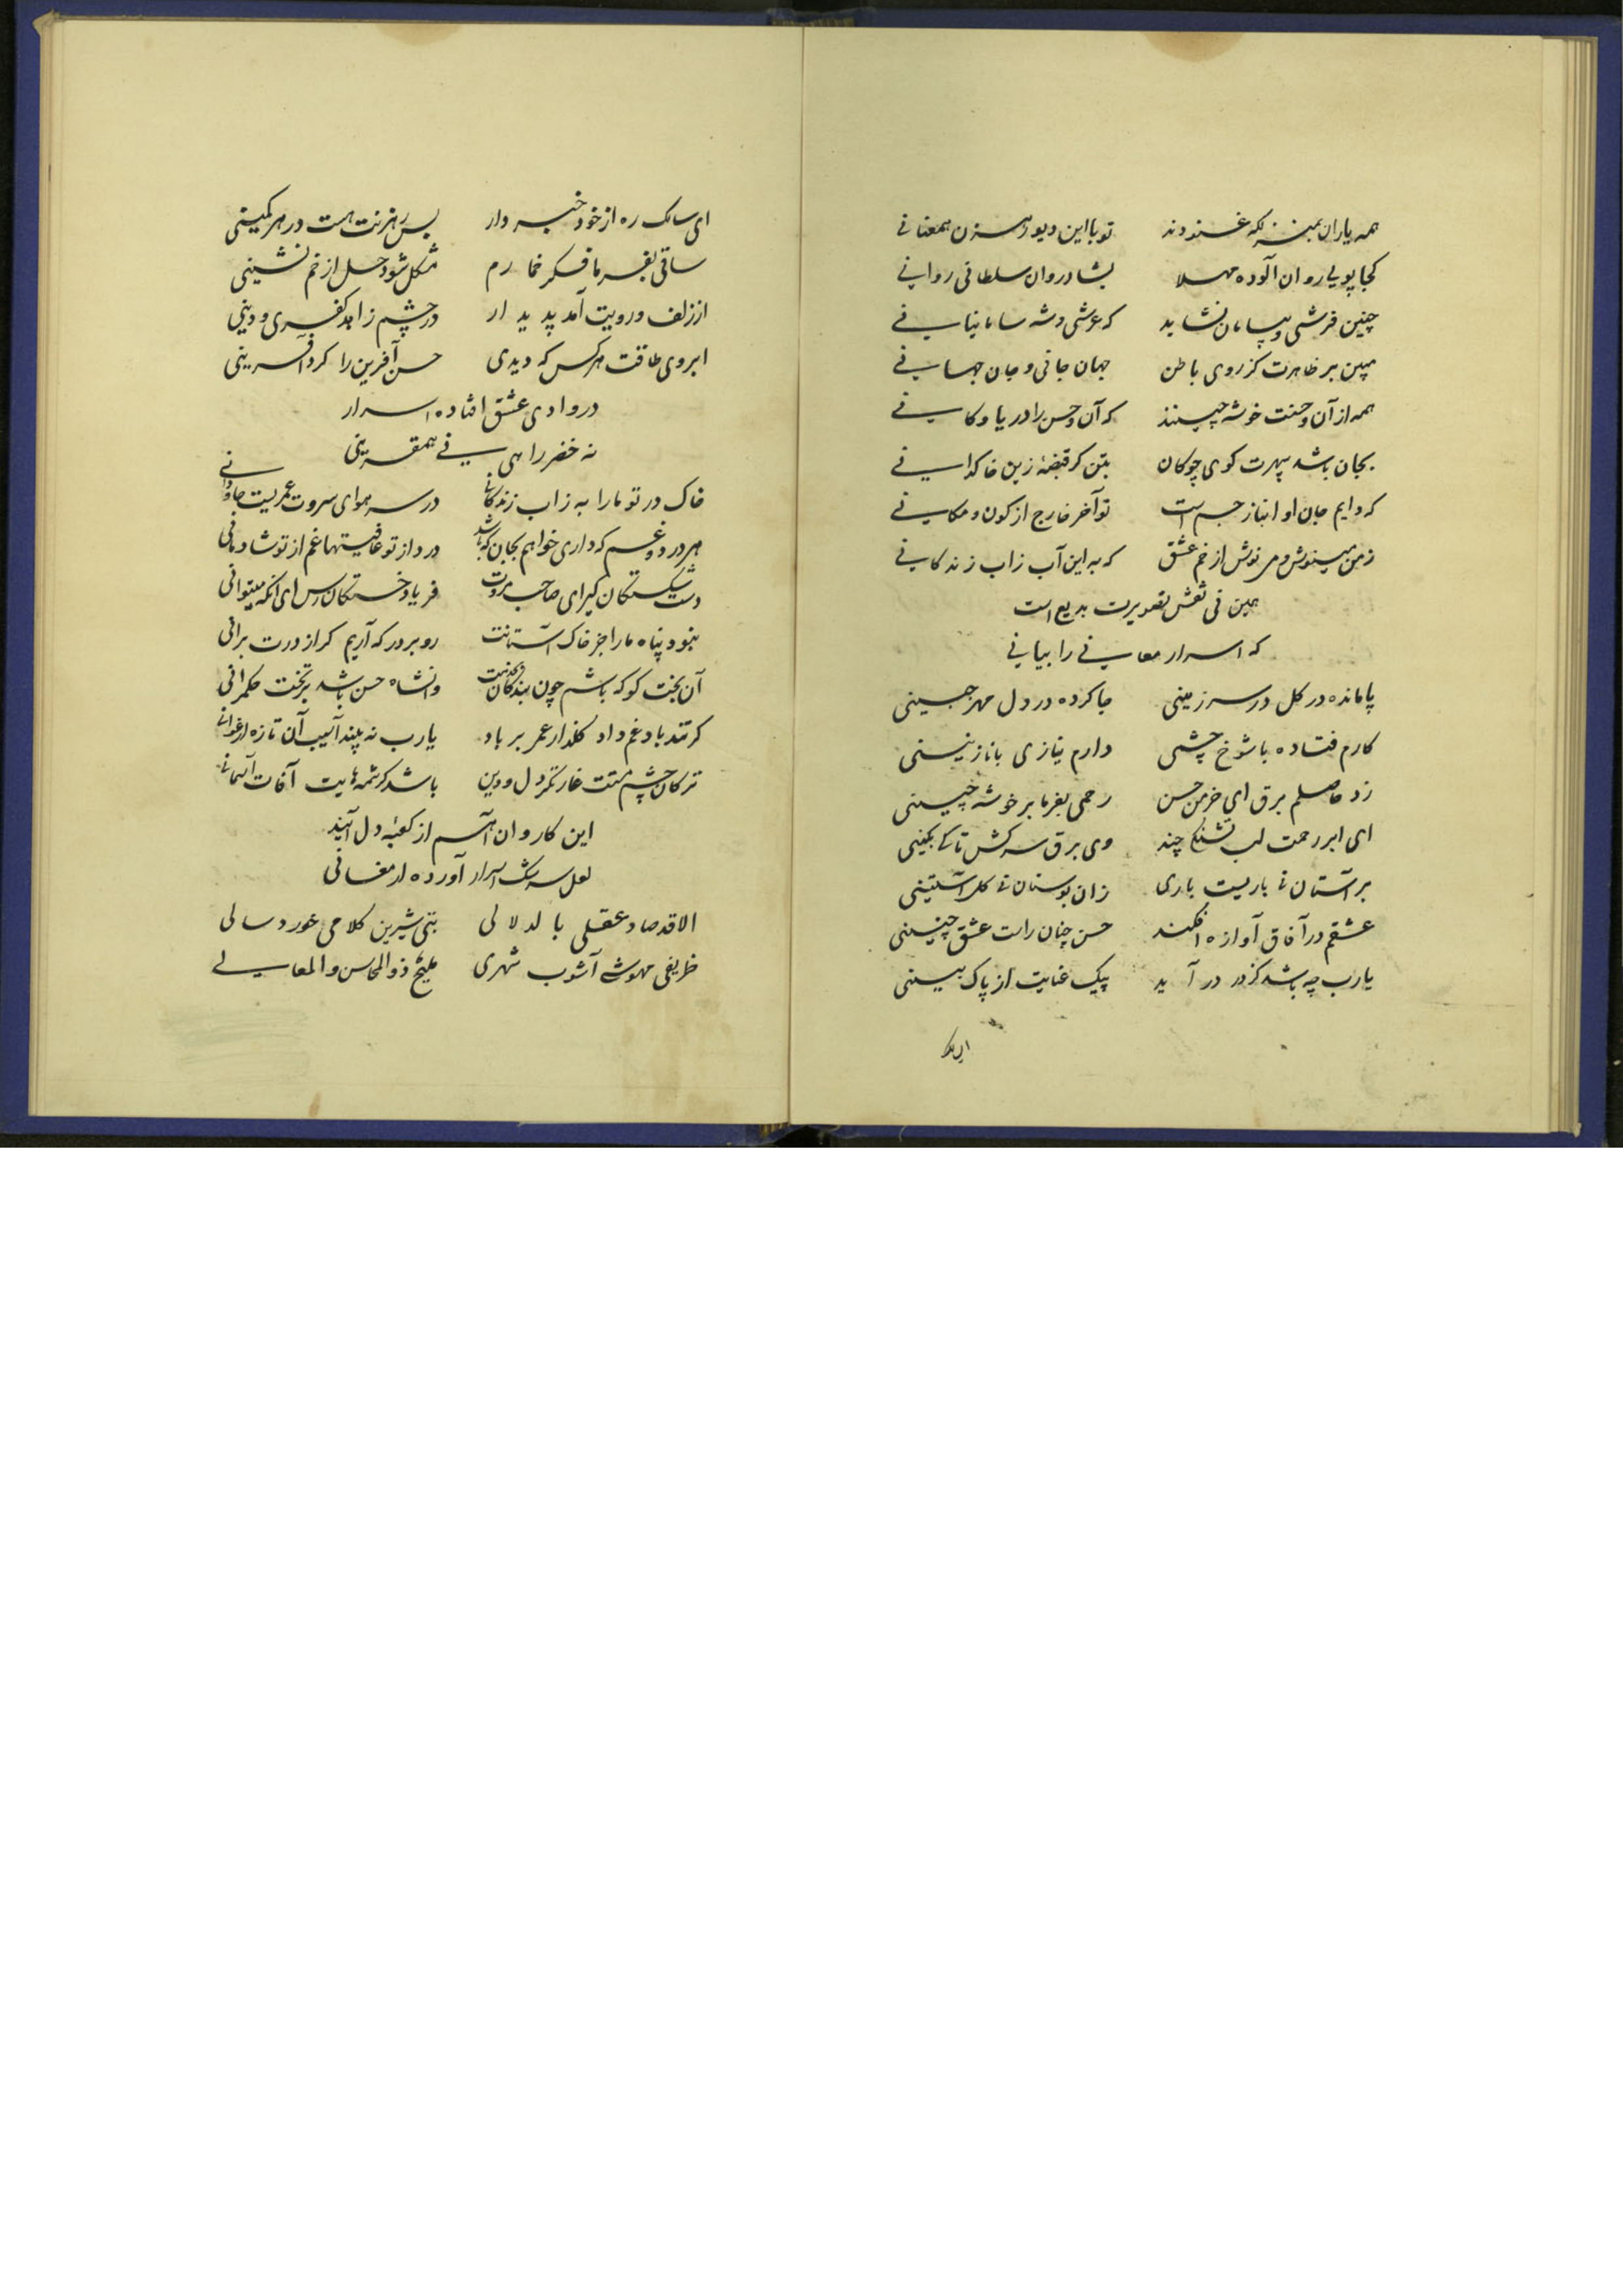 همه یاران بمنزلگه غنودند تو با این دیو رهزن همعنانی
کجا پویی روان آلوده مهلا بشادروان سلطانی روانی
چنین فرشی و بیسامان نشاید که عرشی و شه سامانیانی
مبین بر ظاهرت کز روی باطن جهان جانی و جان جهانی
همه از آن و حسنت خوشه چینند که آن و حسن را دریا و کانی
بجان باشد سپهرت کوی چوکان بتن کر قبضهٔ زین خاکدانی
که دایم جان او انباز جسم است تو آخر خارج از کون و مکانی
زمن مینوش و می نوش از خم عشق که به این آب زاب زندکانی
همین نی نقش تصویرت بدیع است
که اسرار معانی را بیانی
پا مانده در کل در سرزمینی جا کرده در دل مهر جبینی
کارم فتاده با شوخ چشمی دارم نیازی با نازنینی
زد حاصلم برق ای خرمن حسن رحمی بفرما بر خوشه چینی
ای ابر رحمت لب تشنکی چند وی برق سرکش تا کی بکینی
بر آستان نی باریست باری زان بوستان نی کل آستینی
عشقم در آفاق آوازه افکند حسن چنان راست عشق چنینی
یارب چه باشد کز در در آید پیک عنایت از پاک بینی
ای سالک ره از خود خبردار بس رهزنت هست در هر کمینی
ساقی بفرما فکر خمارم مشکل شود حل از خم نشینی
از زلف و رویت آمد پدیدار در چشم زاهد کفری و دینی
ابروی طاقت هرکس که دیدی حسن آفرین را کرد آفرینی
در وادی عشق افتاده اسرار
نه خضر راهی نی همقرینی
خاک در تو ما را به زاب زندکانی در سر هوای سروت عمریست جاودانی
هر درد و غم که داری خواهم بجان که باشد درد از تو عافیتها غم از تو شادمانی
دست شکستکان کیر ای صاحب مروت فریاد خستکان رس ای آنکه میتوانی
نبود پناه ما را جز خاک آستانت رو بر در که آریم کر از درت برانی
آن بخت کو که باشم چون بندکان وآنشاه حسن باشد بر تخت حکمرانی
کر تندباد غم داد کلذار عمر بر باد یارب نه بیند آسیب آن تازه ارغوانی
ترکان چشم مستت غارتکر دل و دین باشد کرشمه‌هایت آفات آسمانی
این کاروان اسم از کعبهٔ دل آیند
لعل سرشک اسرار آورده ارمغانی
الا قد صاد عقلی بالدلالی بتی شیرین کلامی خوردسالی
ظریفی مهوشی آشوب شهری ملیح ذوالمحاسن والمعالی